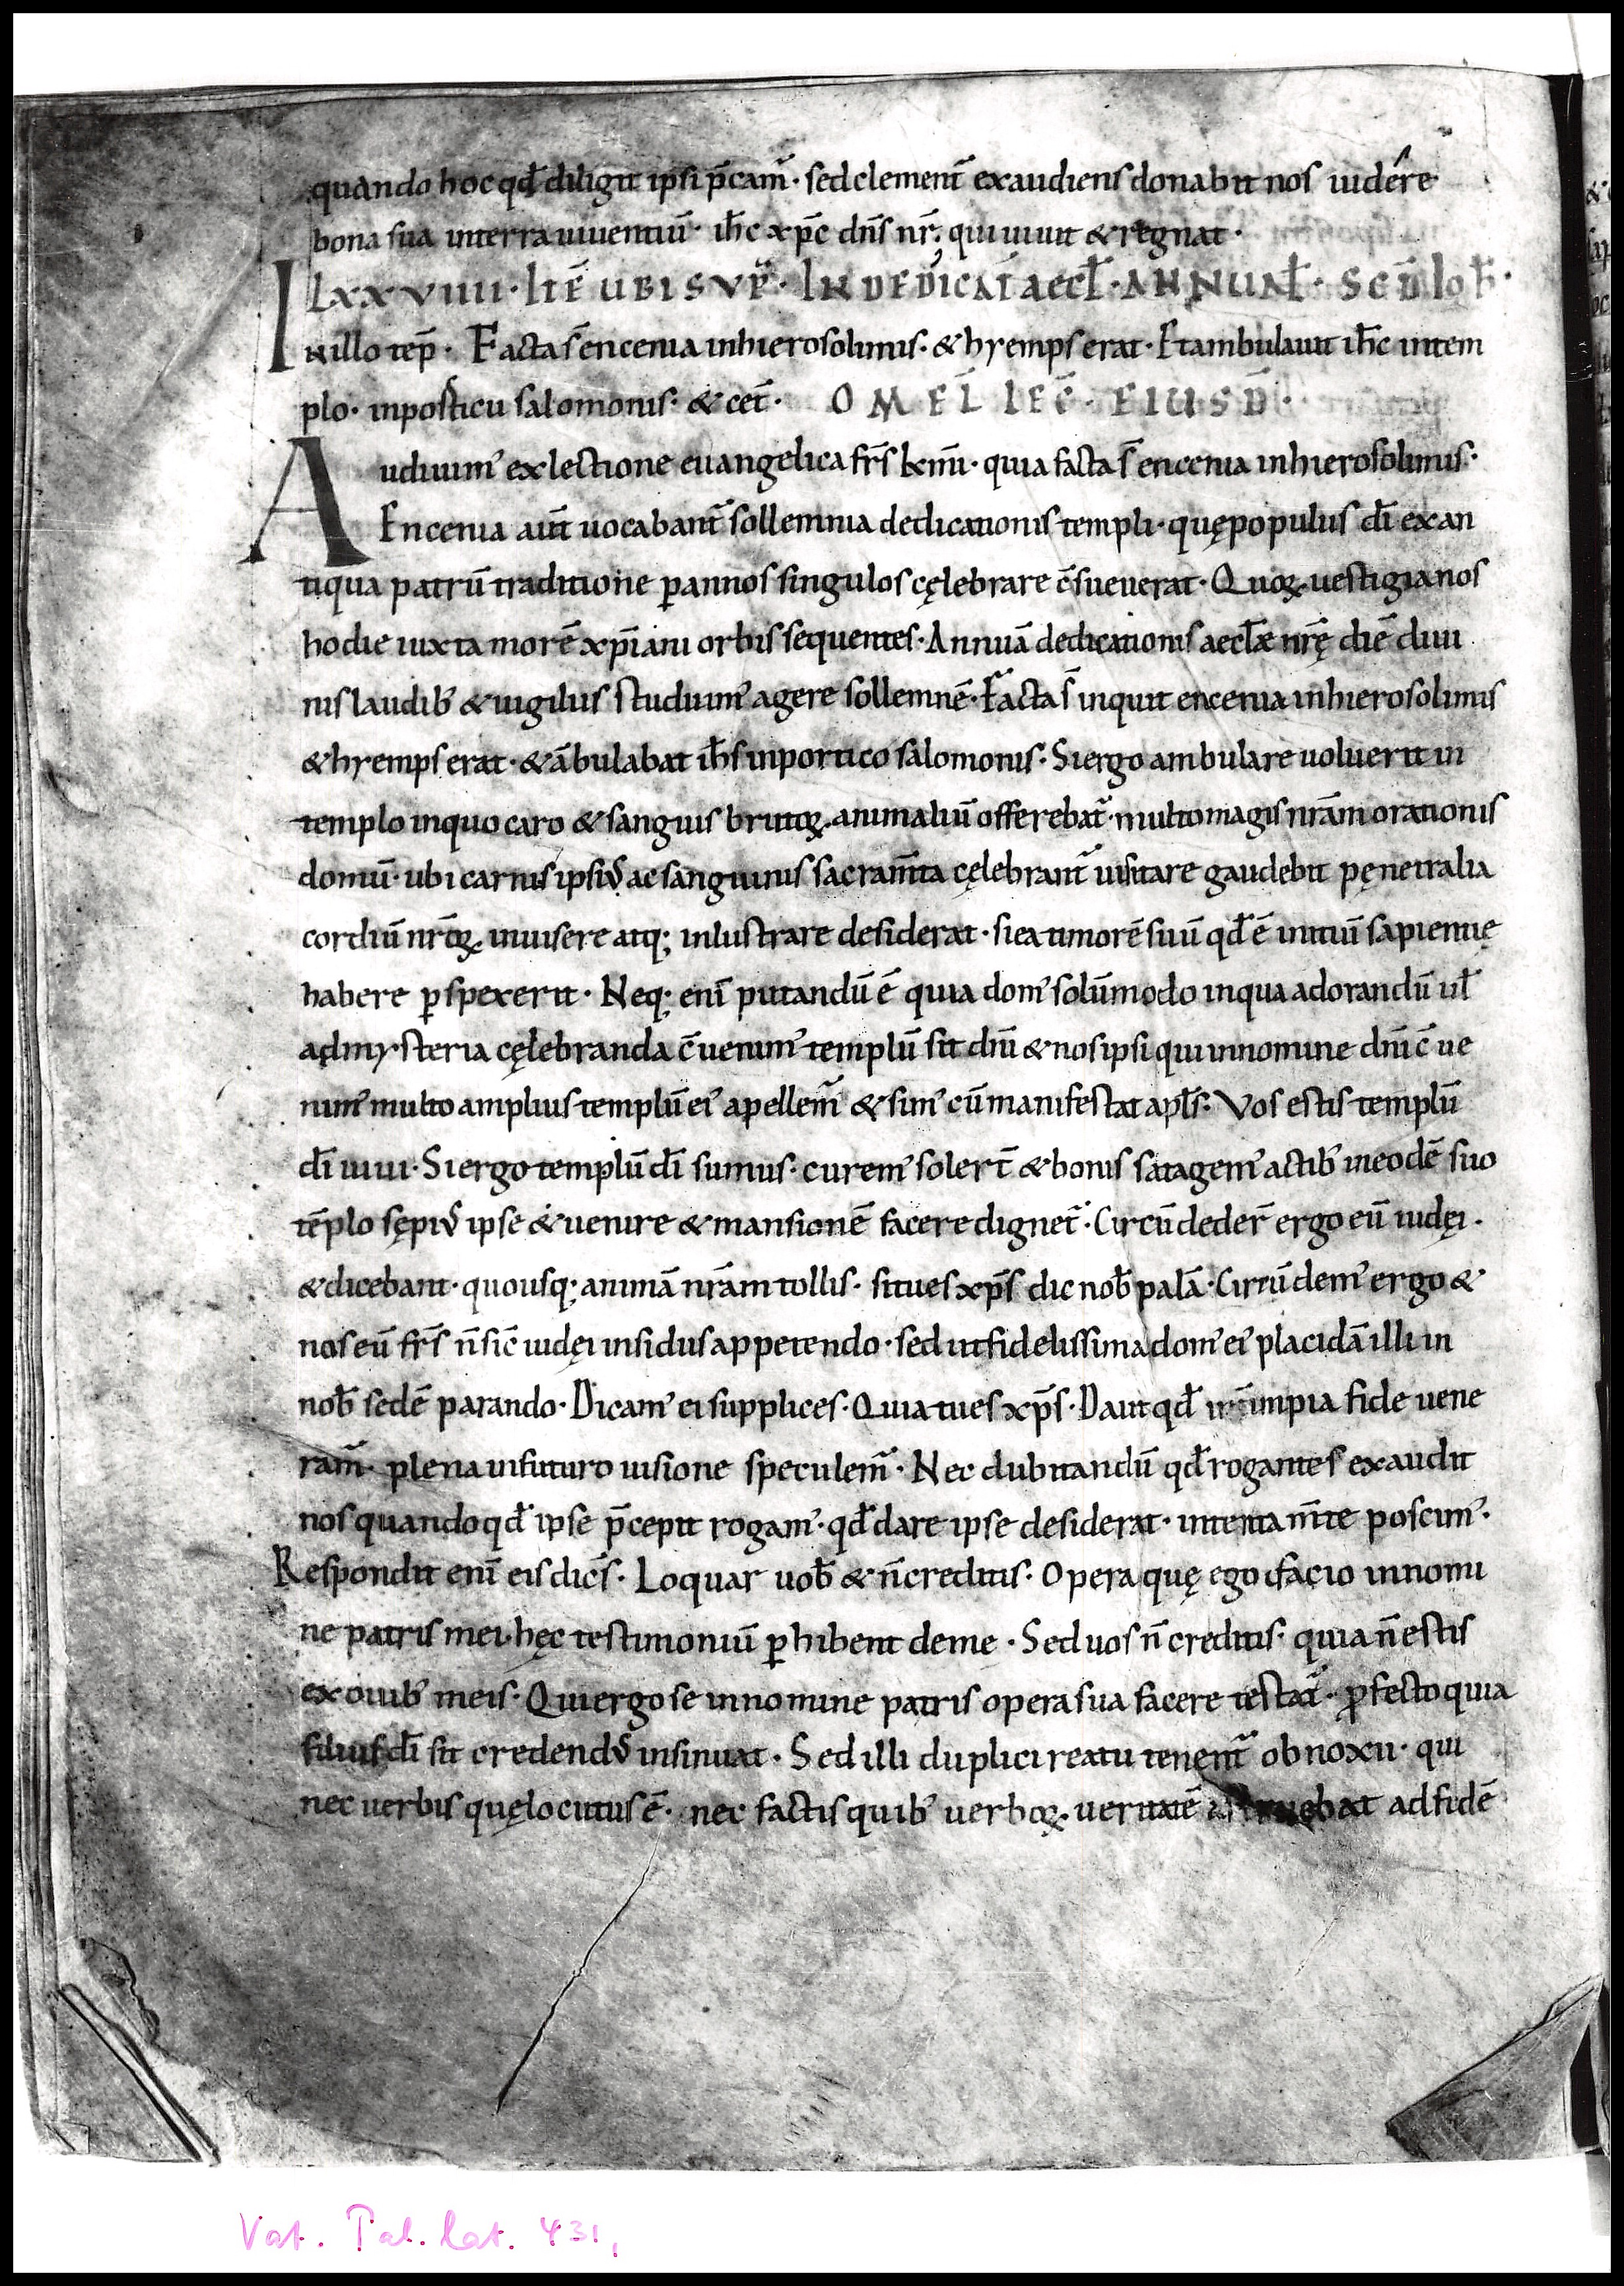 quando hoc qđ diligit ipsi p̄cam̃· sed clemenт̄ exaudiens donabit nos uidere
bona sua interra uiuentiū· ih̄c xp̄c dn̄s nr̄, qui uiuit & regnat·
LXXVIIII· ITĒ UBI SVP̃· IN DEDICAT̄ aecl̄· ANNUAL̄· SCD̄ Ioh̄·
Inillo tep̄· Facta s̄ encenia inhierosolimis· & hyemps erat· Et ambulauit ih̄c intem
plo· inposticu salomonis· & cet̄· OMEL̄ LEC̄· EIUSD̄·
Audiuim' ex lectione euangelica fr̄s kmī· quia facta s̄ encenia inhierosolimis·
Encenia aut̄ uocabant̃ sollemnia dedicationis templi· quę populus dī ex an
tiqua patrū traditione ꝑannos singulos cęlebrare c̄sueuerat· Quoꝝ uestigia nos
hodie iuxta morē xp̄iani orbis sequentes· Annuā dedicationis aecl̄æ nr̄ę diē diui
nis laudib' & uigiliis studuim' agere sollemnē· Facta s̄ inquit encenia inhierosolimis
& hyemps erat· & ābulabat ih̄s inportico salomonis· Si ergo ambulare uoluerit in
templo inquo caro & sanguis brutoꝝ animaliū offerebat̃· multo magis nr̄am orationis
domū· ubi carnis ipsiꝰ ac sanguinis sacram̄ta cęlebrant̃ uisitare gaudebit pęnetralia
cordiū nr̄oꝝ inuisere atq; inlustrare desiderat· si ea timorē suū qđ ē initiū sapientię
habere ꝑspexerit· Neq; enī putandū ē quia dom' solūmodo inqua adorandū ul̄
ad mysteria cęlebranda c̄uenim' templū sit dnī & nos ipsi qui innomine dnī c̄ue
nim' multo amplius templū ei' apellem̃ & sim' cū manifestat apl̄s· Vos estis templū
dī uiui· Si ergo templū dī sumus· curem' solert̄ & bonis satagem' actib' ineodē suo
tēplo sępiꝰ ipse & uenire & mansionē facere dignet̃· Circū deder̄ ergo eū iudęi·
& dicebant· quousq; animā nr̄am tollis· si tu es xp̄s dic nob̄ palā· Circū dem' ergo &
nos eū fr̄s n̄ sic̄ iudęi insidiis appetendo· sed ut fidelissima dom' ei' placidā illi in
nob̄ sedē parando· Dicam' ei supplices· Quia tu es xp̄s· Da ut qđ pia fide uene
ram̃· plena infuturo uisione speculem̃· Nec dubitandū qđ rogantes exaudit
nos quando qđ ipse p̄cepit rogam'· qđ dare ipse desiderat· intenta m̄te poscim'·
Respondit enī eis dic̄s· Loquar uob̄ & n̄ creditis· Opera quę ego facio innomi
ne patris mei· hęc testimoniū ꝑhibent deme· Sed uos n̄ creditis· quia n̄ estis
ex ouib' meis· Qui ergo se innomine patris opera sua facere testat̃· ꝓfecto quia
filius dī sit credendꝰ insinuat· Sed illi duplici reatu tenent̃ obnoxii· qui
nec uerbis quę locutus ē· nec factis quib' uerboꝝ ueritatē ad fidē
Vat. Pal. lat. 431,